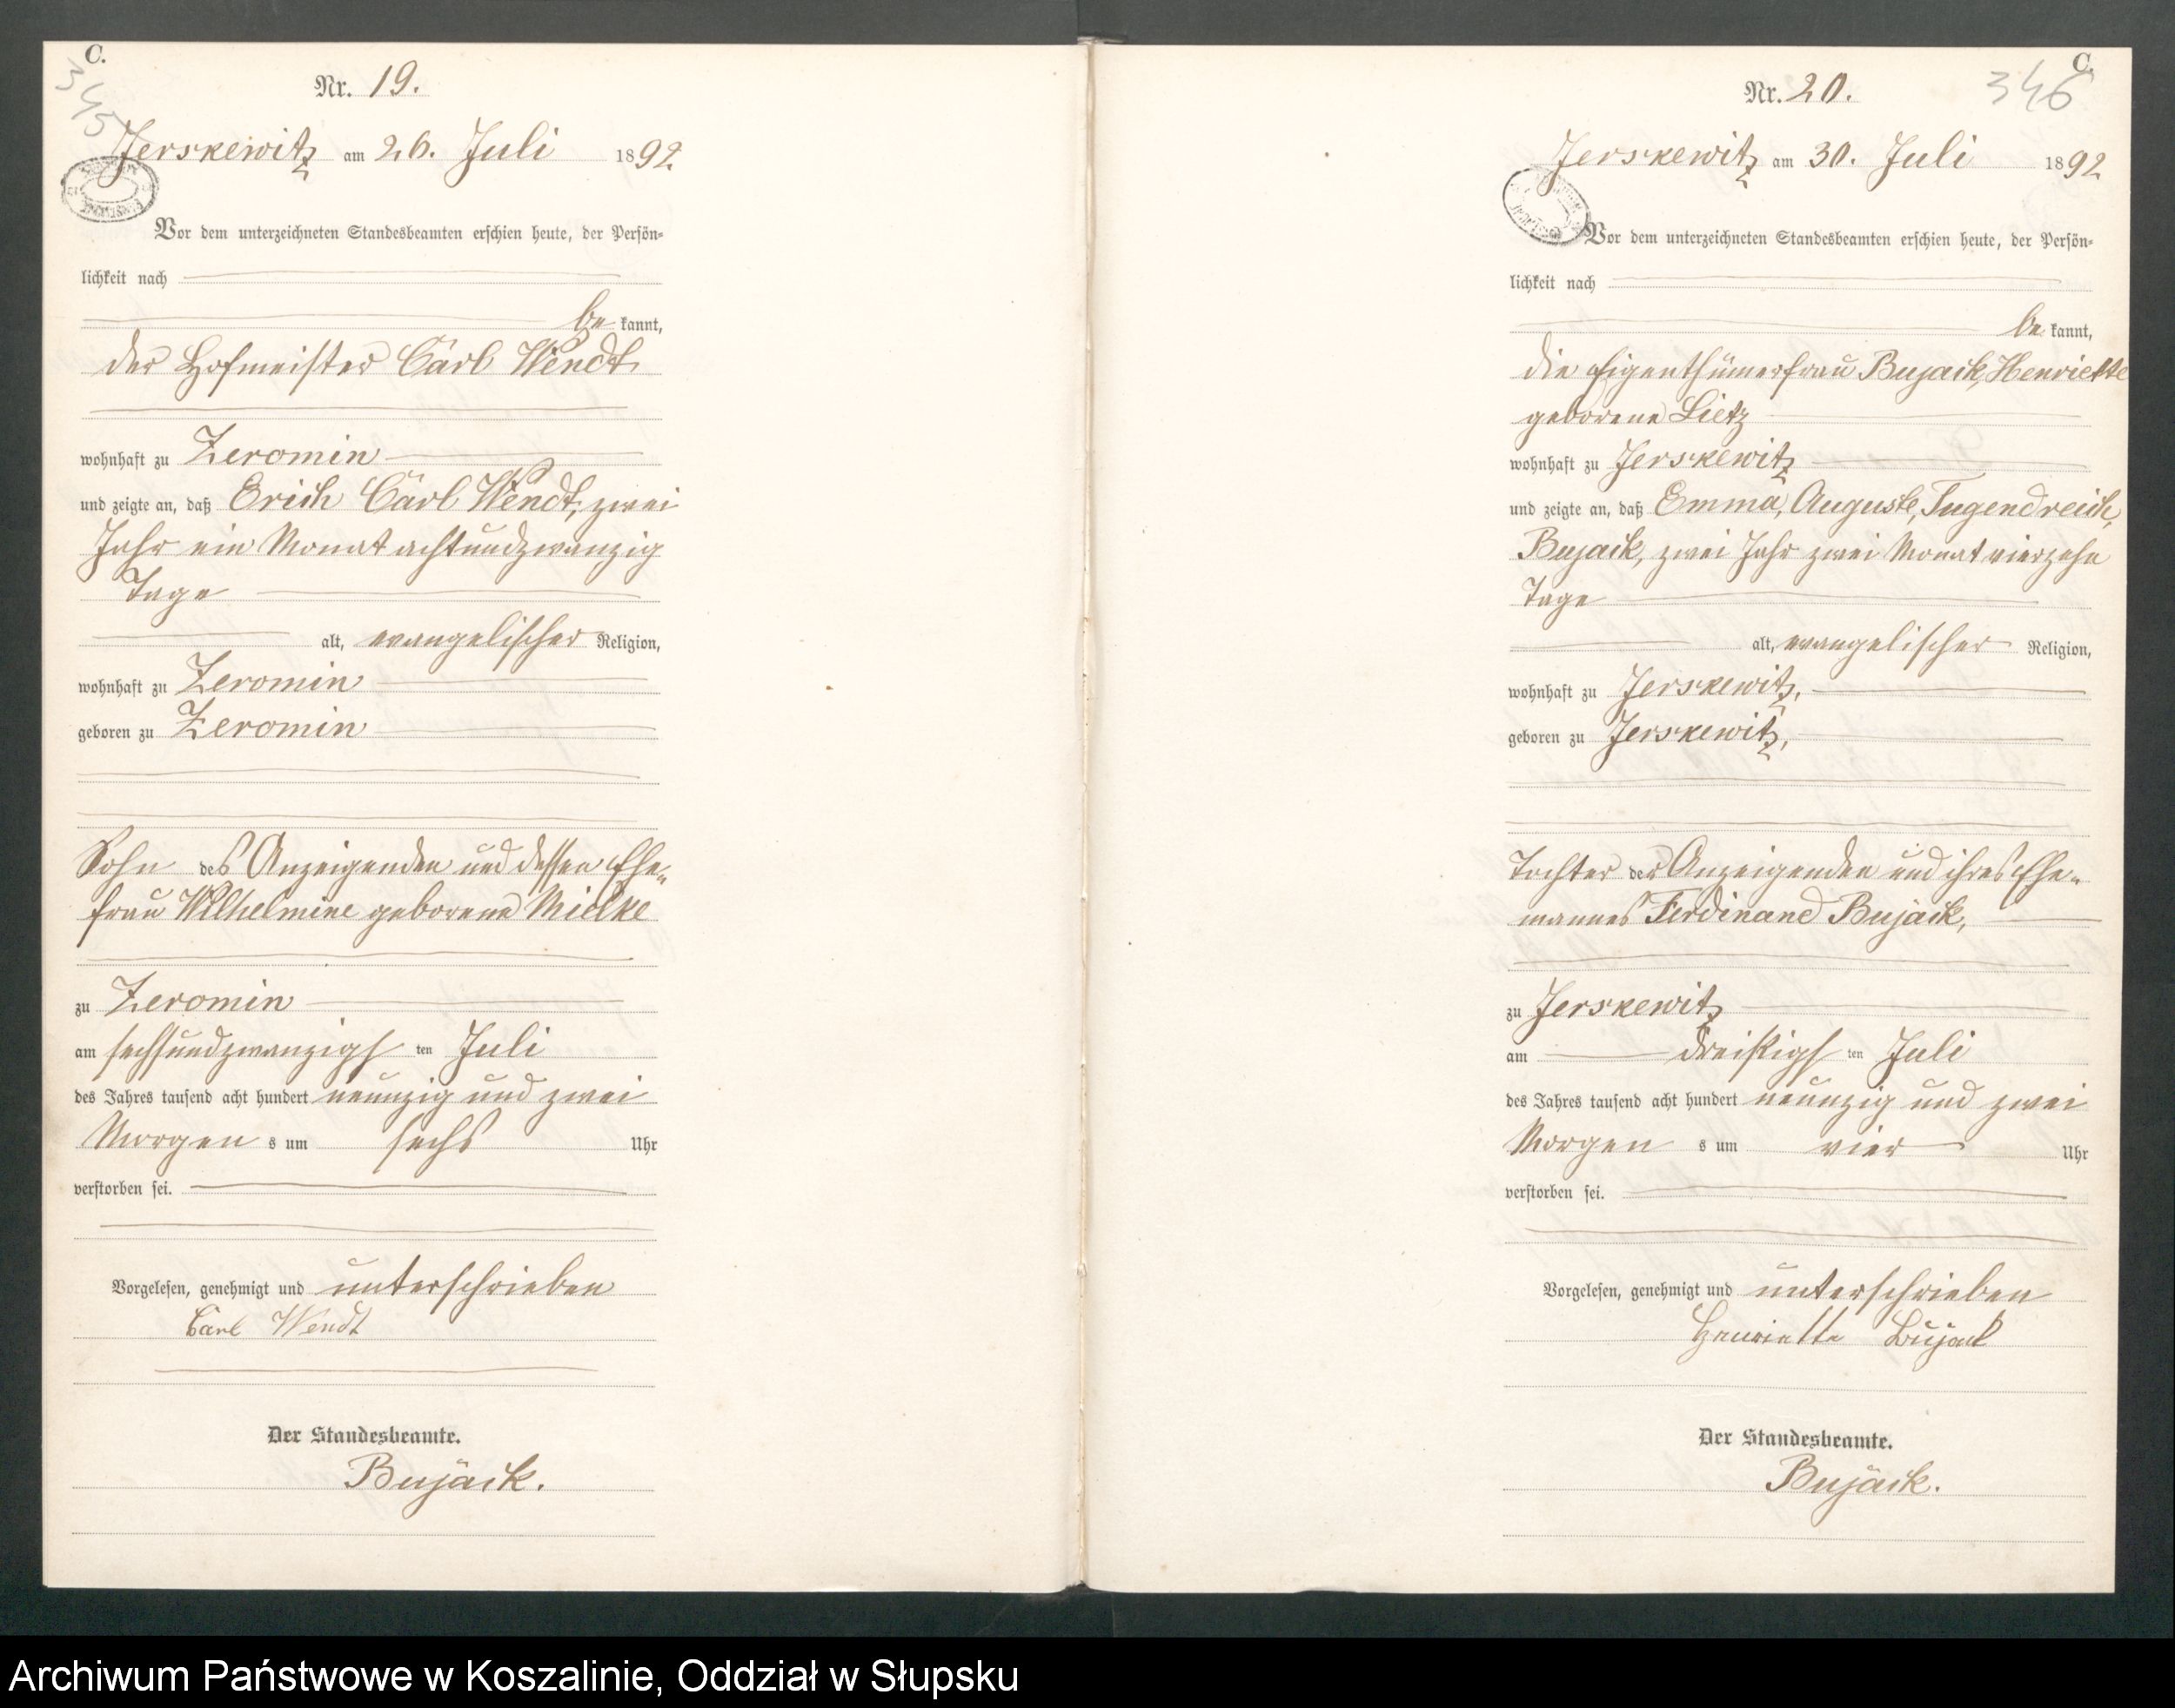 C.
345
Nr. 19.
Jerskewitz am 26. Juli 1892.
Vor dem unterzeichneten Standesbeamten erschien heute, der Persön=
lichkeit nach
be kannt,
der Hofmeister Carl Wendt
wohnhaft zu Zeromin
und zeigte an, daß Erich Carl Wendt, zwei
Jahr ein Monat achtundzwanzig
Tage
alt, evangelischer Religion,
wohnhaft zu Zeromin
geboren zu Zeromin
Sohn des Anzeigenden und dessen Ehe=
frau Wilhelmine geborene Mielke
zu Zeromin
am sechsundzwanzigs ten Juli
des Jahres tausend acht hundert neunzig und zwei
Morgen s um sechs Uhr
verstorben sei.
Vorgelesen, genehmigt und unterschrieben
Carl Wendt
Der Standesbeamte.
Bujack.
C.
346
Nr. 20.
Jerskewitz am 30. Juli 1892
Vor dem unterzeichneten Standesbeamten erschien heute, der Persön=
lichkeit nach
be kannt,
die Eigenthümerfrau Bujack, Henriette
geborene Lietz
wohnhaft zu Jerskewitz
und zeigte an, daß Emma, Auguste, Tugendreich,
Bujack, zwei Jahr zwei Monat vierzehn
Tage
alt, evangelischer Religion,
wohnhaft zu Jerskewitz,
geboren zu Jerskewitz,
Tochter der Anzeigenden und ihres Ehe=
mannes Ferdinand Bujack,
zu Jerskewitz
am dreißigs ten Juli
des Jahres tausend acht hundert neunzig und zwei
Morgen s um vier Uhr
verstorben sei.
Vorgelesen, genehmigt und unterschrieben
Henriette Bujack
Der Standesbeamte.
Bujack.
Archiwum Państwowe w Koszalinie, Oddział w Słupsku